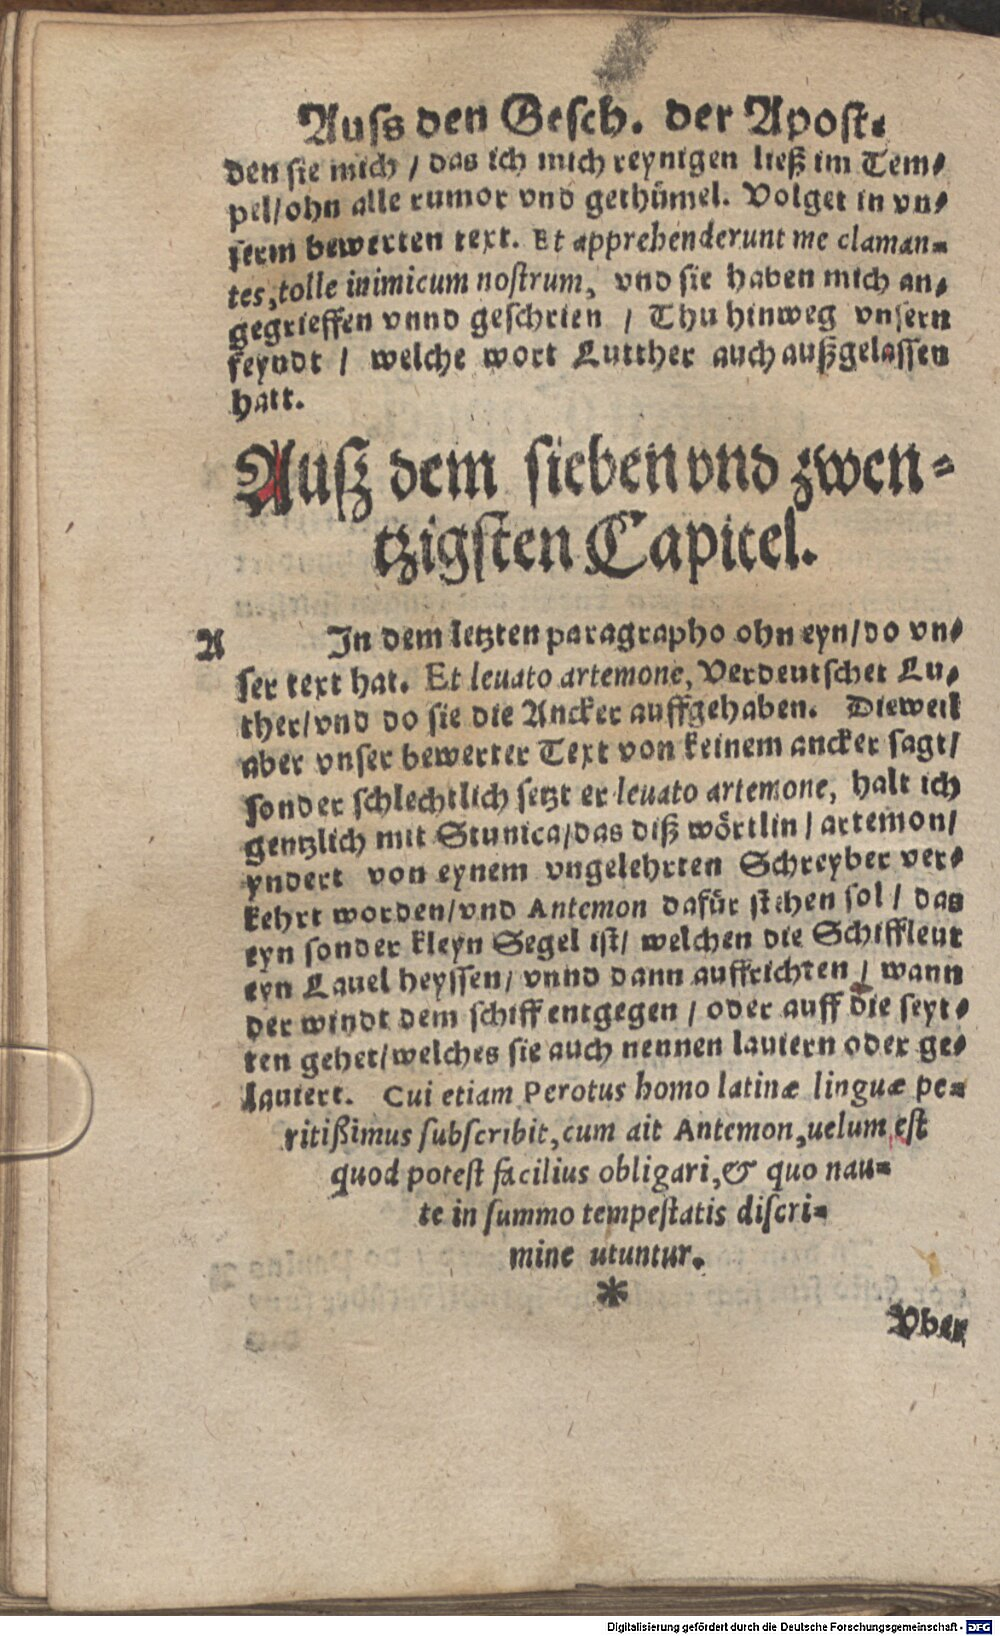 Auſs den Geſch. der Apoſt⸗
den ſie mich / das ich mich reynigen ließ im Tem⸗
pel/ohn alle rumor vnd gethümel. Volget in vn⸗
ſerm bewerten text. Et apprehenderunt me claman⸗
tes, tolle inimicum noſtrum, vnd ſie haben mich an⸗
gegrieffen vnnd geſchrien / Thu hinweg vnſern
feyndt / welche wort Lutther auch außgelaſſen
hatt.
Auſz dem ſieben vnd zwen⸗
tzigſten Capitel.
A
In dem letzten paragrapho ohn eyn/do vn⸗
ſer text hat. Et leuato artemone, Verdeutſchet Lu⸗
ther/vnd do ſie die Ancker auffgehaben. Dieweil
aber vnſer bewerter Text von keinem ancker ſagt/
ſonder ſchlechtlich ſetzt er leuato artemone, halt ich
gentzlich mit Stunica/das diß wörtlin / artemon/
yndert von eynem vngelehrten Schreyber ver⸗
kehrt worden/vnd Antemon dafür ſtehen ſol / das
eyn ſonder kleyn Segel iſt/ welchen die Schiffleut
eyn Lauel heyſſen/ vnnd dann auffrichten / wann
der windt dem ſchiff entgegen / oder auff die ſeyt⸗
ten gehet/welches ſie auch nennen lauiern oder ge⸗
lauiert. Cui etiam Perotus homo latinæ linguæ pe⸗
ritißimus ſubſcribit, cum ait Antemon, uelum eſt
quod poteſt facilius obligari, & quo nau⸗
te in ſummo tempeſtatis diſcri⸗
mine utuntur.
*
Vber
Digitalisierung gefördert durch die Deutsche Forschungsgemeinschaft - DFG